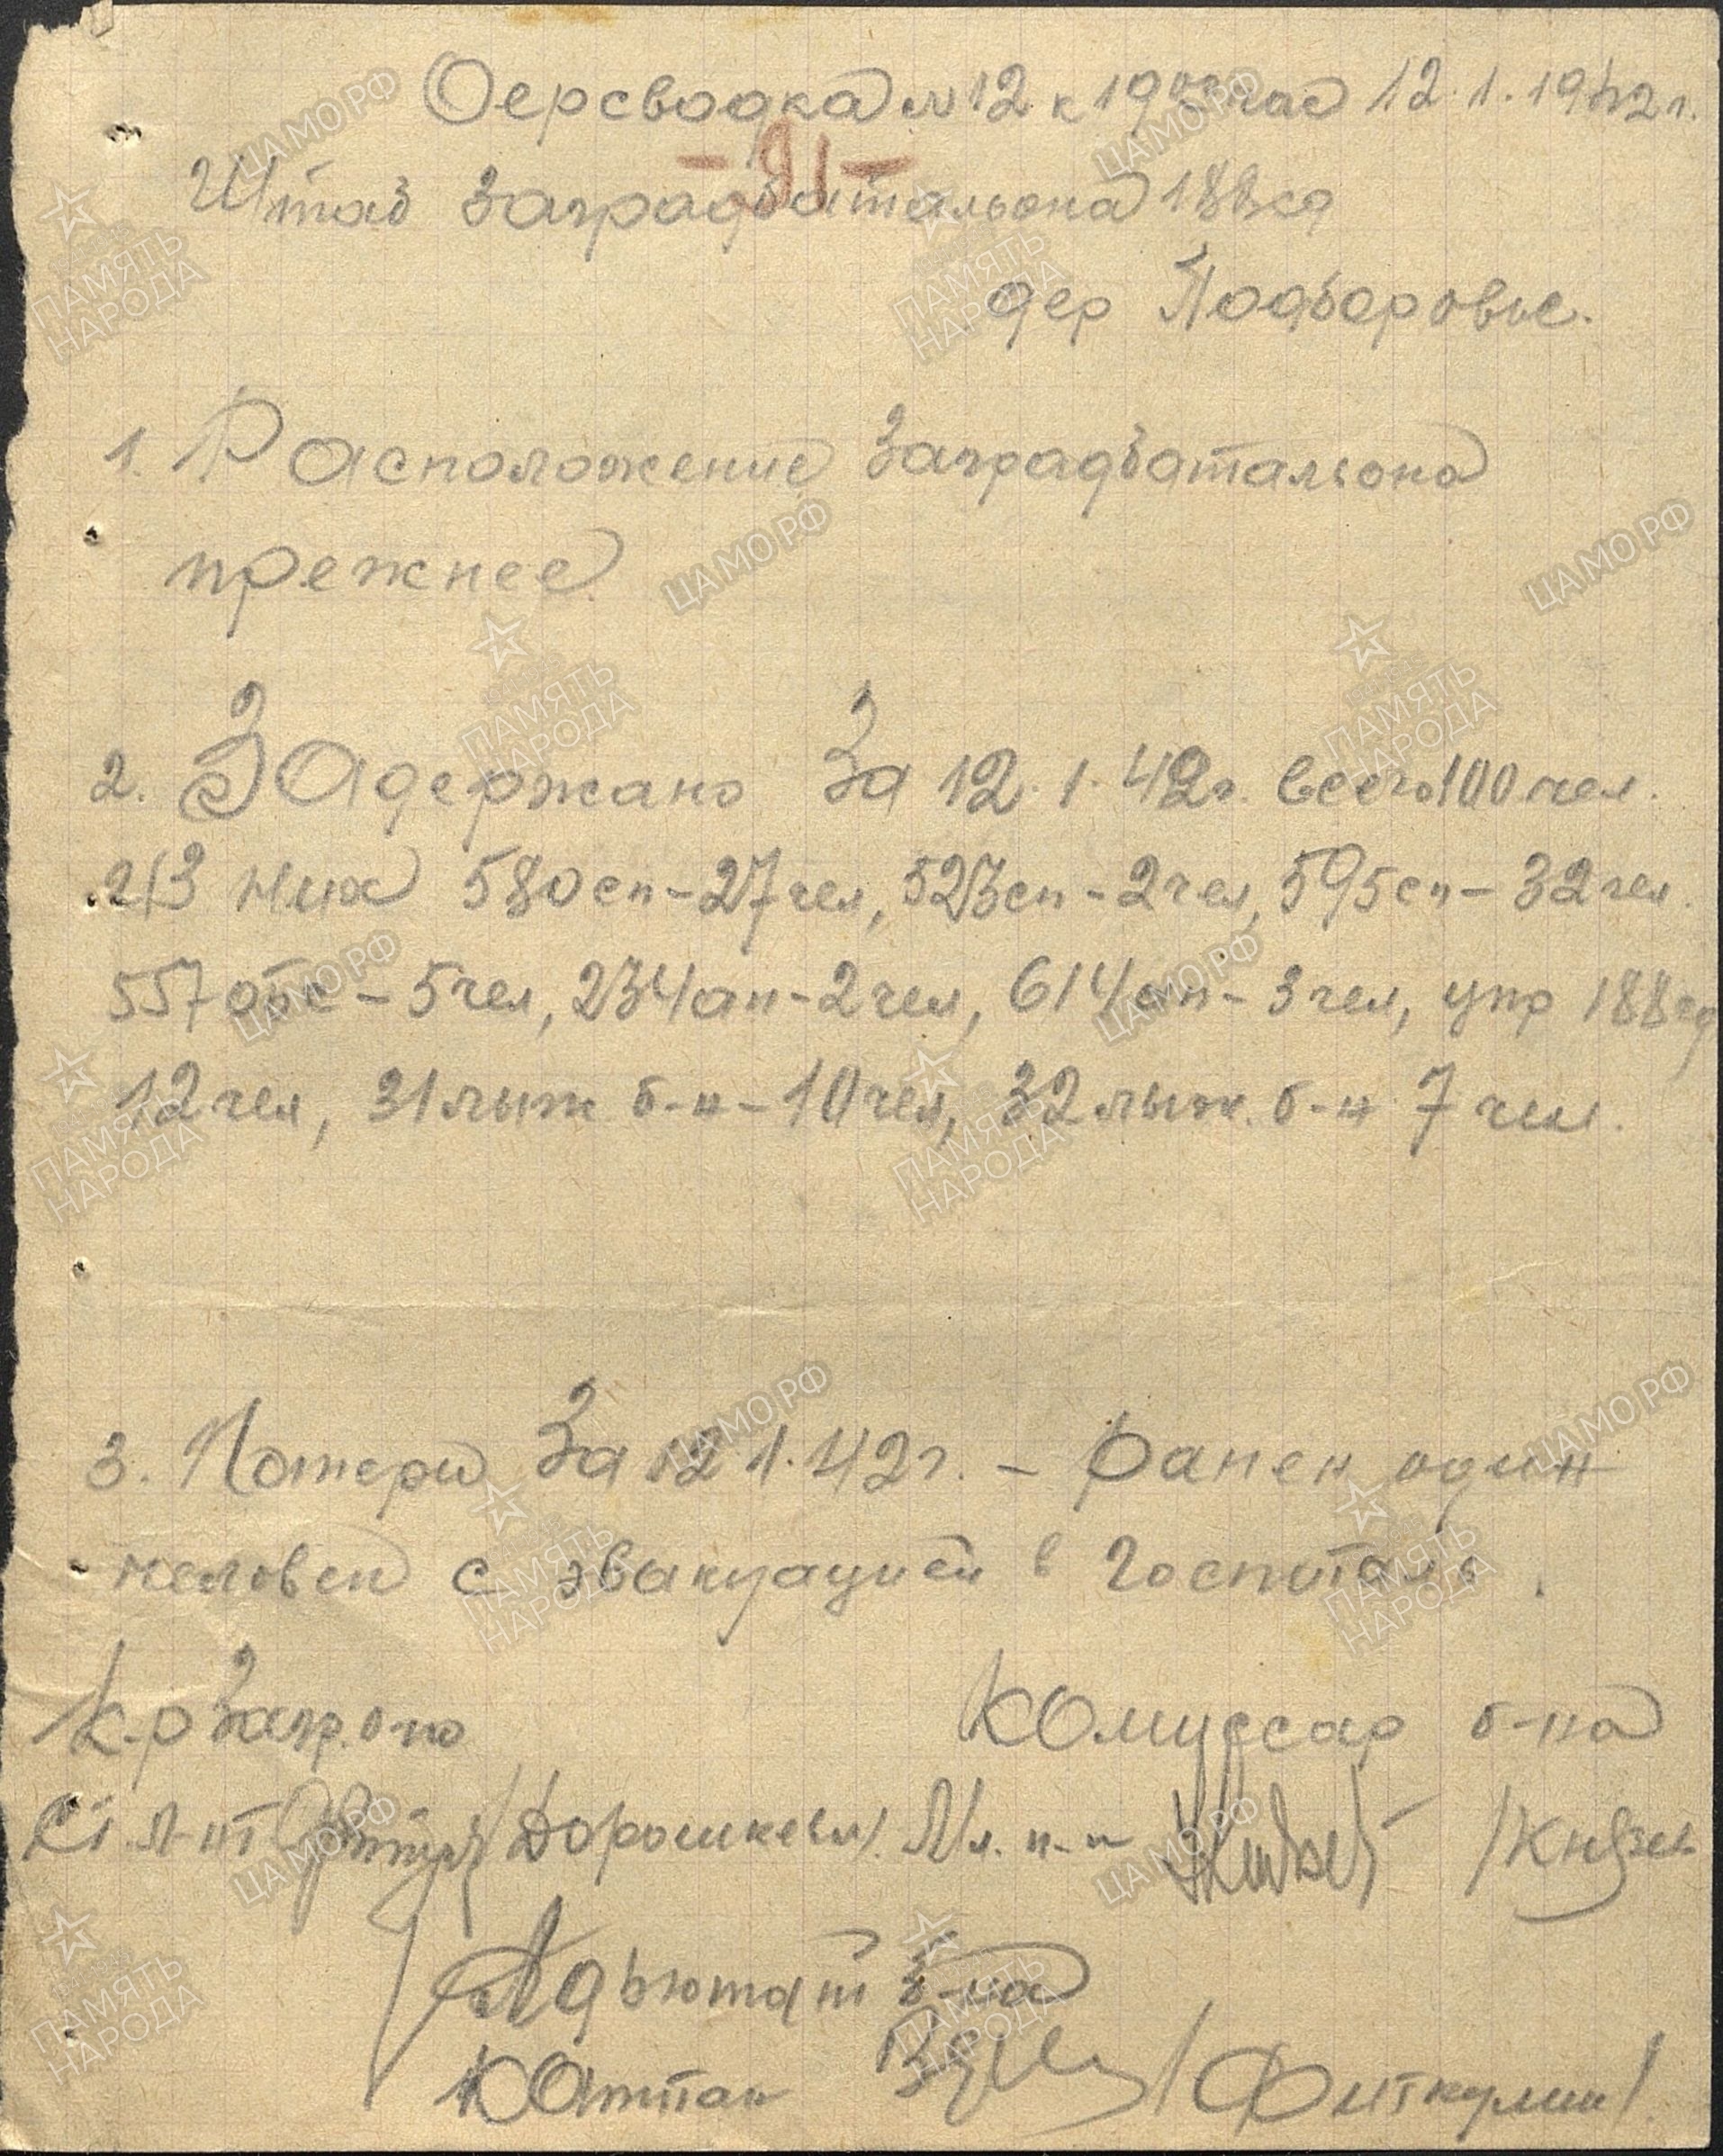 Оерсводка № 12 к 19 00 час 12.1.1942 г.
-91-
Штаб Заградбатальона 188 сд
дер Подборовье.
1. Расположение Заградбатальона
прежнее
2. Задержано За 12.1.42 г. всего 100 чел.
из них 580 сп - 27 чел, 523 сп - 2 чел, 595 сп - 32 чел.
557 обс - 5 чел, 234 ап - 2 чел, 614 ап - 3 чел, упр 188 сд
12 чел, 31 лыж б-н - 10 чел, 32 лыж. б-н 7 чел.
3. Потери За 12 1.42 г. - ранен один
человек с эвакуацией в госпиталь.
К-р Загр. б-на
Комуссар б-на
Ст. л-нт /Дорошкевич/. Мл. п-к /Князев
Адьютант б-на
Капитан /Фиткулин/.
ЦАМО.РФ
ПАМЯТЬ
НАРОДА